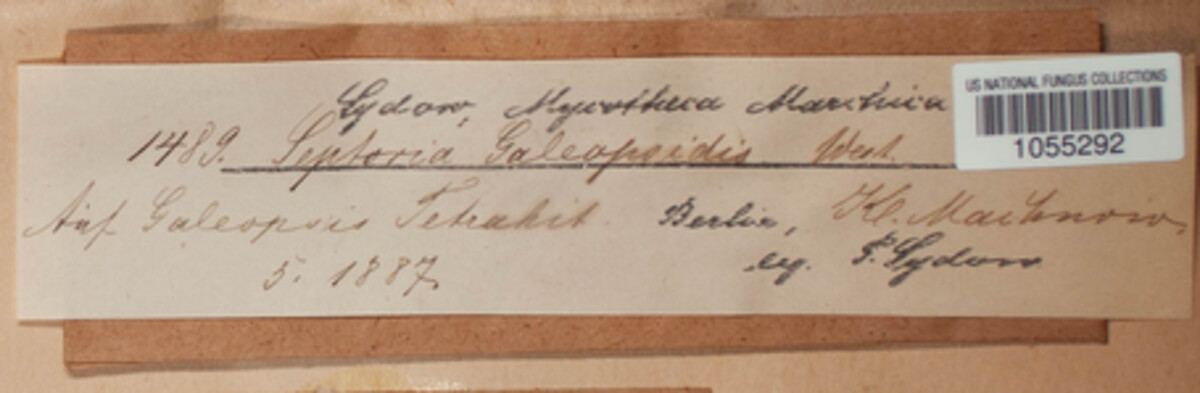 Sydow, Mycotheca Marchica
US NATIONAL FUNGUS COLLECTIONS
1055292
1489. Septoria Galeopsidis West.
Auf Galeopsis Tetrahit Berlin, Kl. Machnow,
5. 1887. leg. P. Sydow